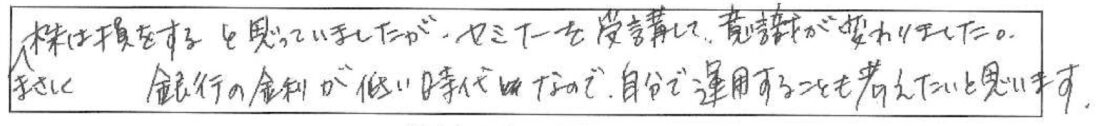 株は損をすると思っていましたが、セミナーを受講して、意識が変わりました。
まさしく 銀行の金利が低い時代なので、自分で運用することも考えたいと思います。